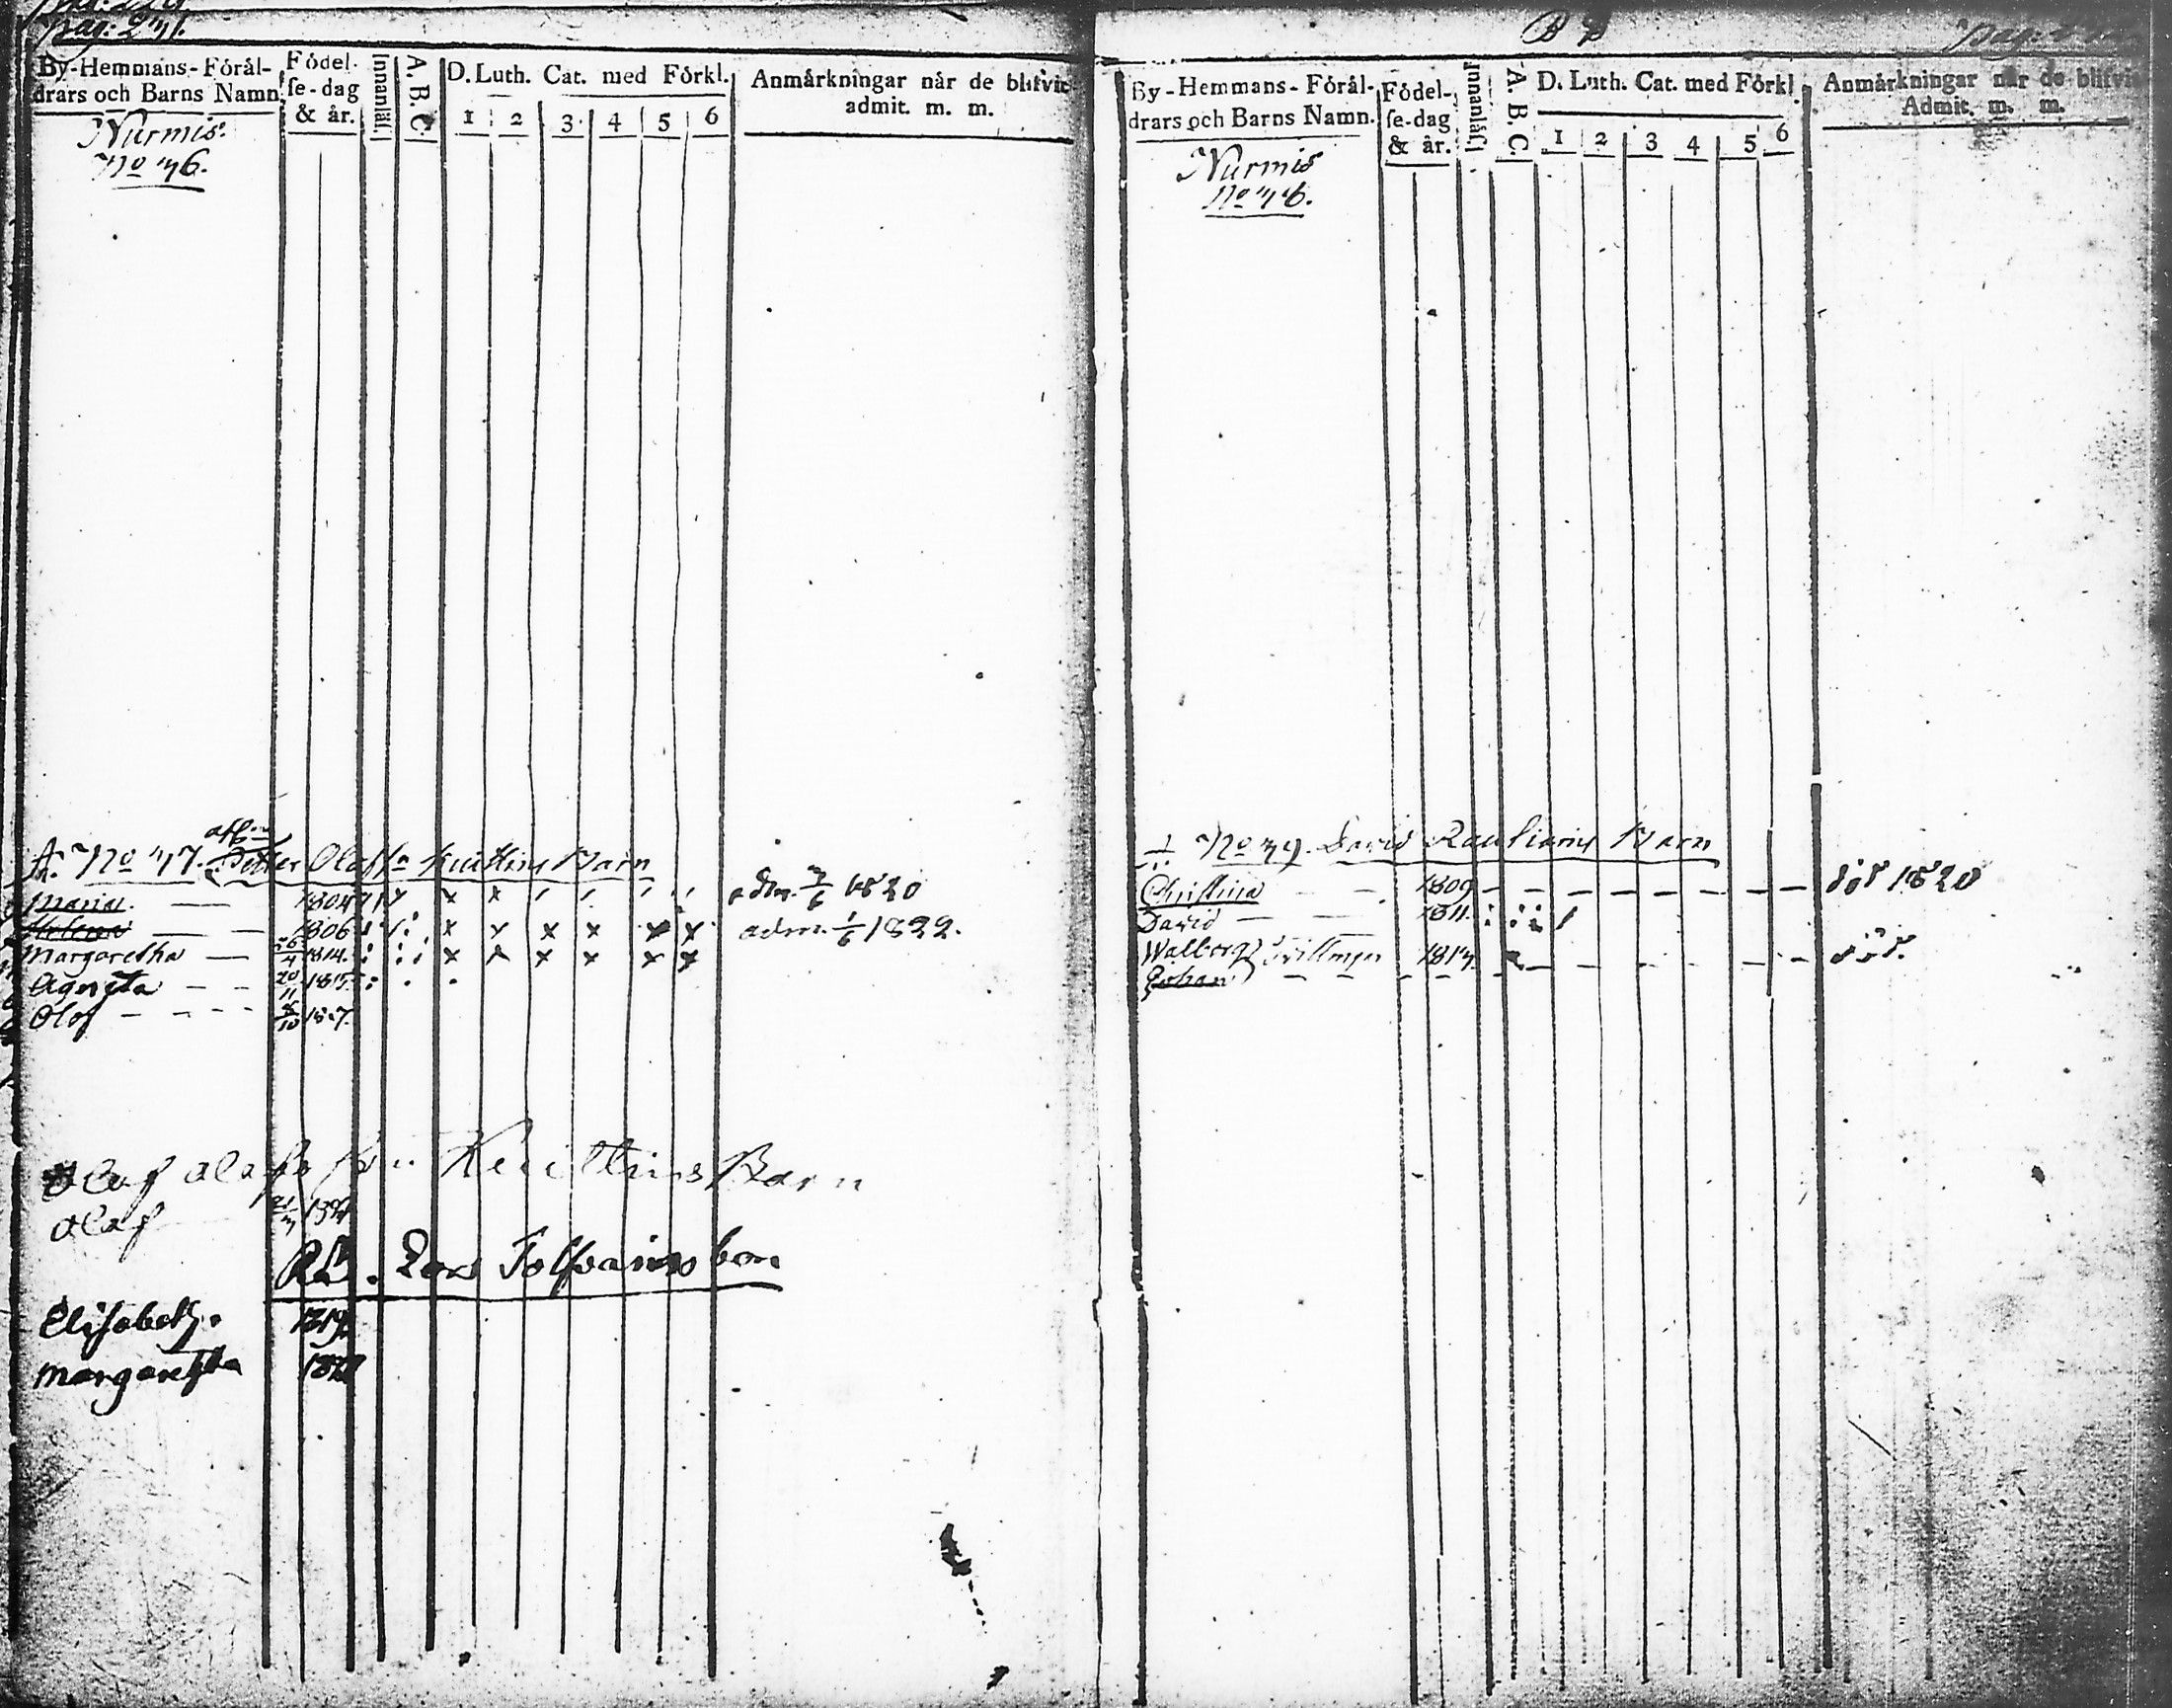 Pag: 271.
By-Hemmans-Föräl-
drars och Barns Namn
Födel-
se-dag
& år.
Innanläs.
A. B. C.
D. Luth. Cat. med Förkl.
1 2 3 4 5 6
Anmärkningar når de blifvit
admit. m. m.
Nurmis
No 76.
No 77. Petter Olafsn Kuittins Barn
Maria. 1804 adm. 7/6 1820
Helena 1806 adm. 1/6 1822.
Margaretha 1814.
Agneta 20/11 1815
Olof
Olaf Olafs Kuittins Barn
Olaf
Lars Tolfvainens barn
Elisabeth.
Margaretha
By-Hemmans-Föräl-
drars och Barns Namn.
Födel-
se-dag
& år.
Innanläs.
A. B. C.
D. Luth. Cat. med Förkl.
1 2 3 4 5 6
Anmärkningar når de blifvit
Admit. m. m.
Nurmis
No 76.
No 79. David Rautiains Barn
Christina 1809 död 1820
David 1811
Walborg Tvillingar 1817. död.
Johan